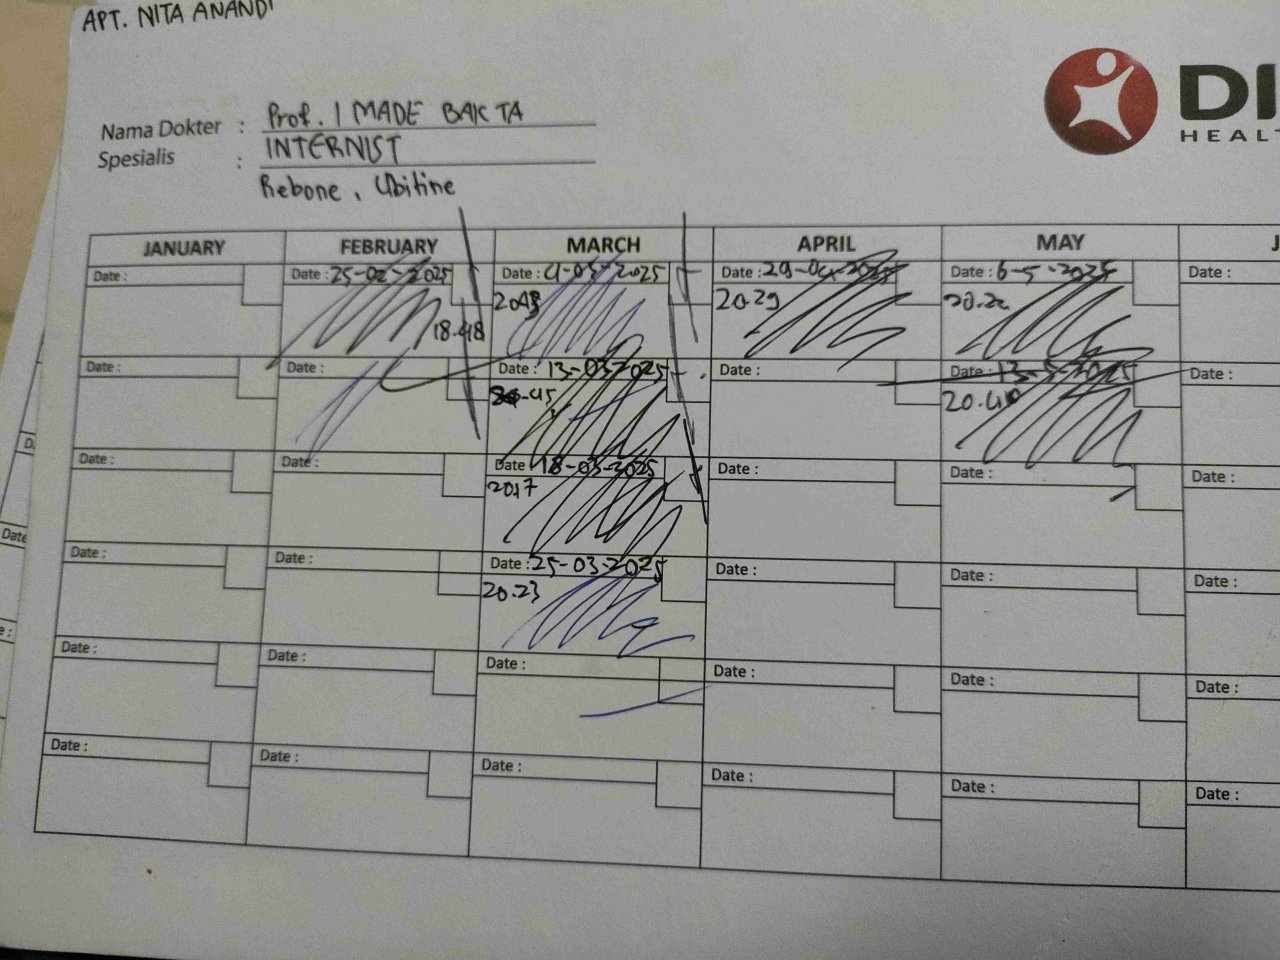 APT. NITA ANANDI
Nama Dokter : Prof. I MADE BAKTA
Spesialis : INTERNIST
Rebone, Ubitine
DI
HEALT
JANUARY FEBRUARY MARCH APRIL MAY J
Date : Date : 25-02-2025 Date : 4-03-2025 Date : 29-04-2025 Date : 6-5-2025 Date :
18.48 2048 20.29 20.22
Date : Date : Date : 13-03-2025 Date : Date : 13-5-2025 Date :
.45 20.40
Date : Date : Date : 18-03-2025 Date : Date : Date :
2017
Date : Date : Date : 25-03-2025 Date : Date : Date :
20.23
Date : Date : Date : Date : Date : Date :
Date : Date : Date : Date : Date : Date :